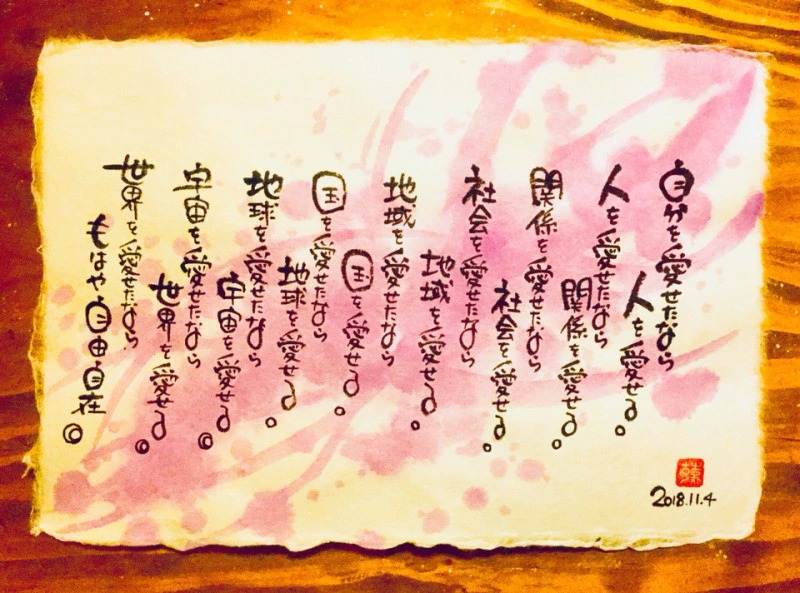 自分を愛せたなら
人を愛せる。
人を愛せたなら
関係を愛せる。
関係を愛せたなら
社会を愛せる。
社会を愛せたなら
地域を愛せる。
地域を愛せたなら
国を愛せる。
国を愛せたなら
地球を愛せる。
地球を愛せたなら
宇宙を愛せる◎
宇宙を愛せたなら
世界を愛せる◎
世界を愛せたなら
もはや自由自在◎
2018.11.4